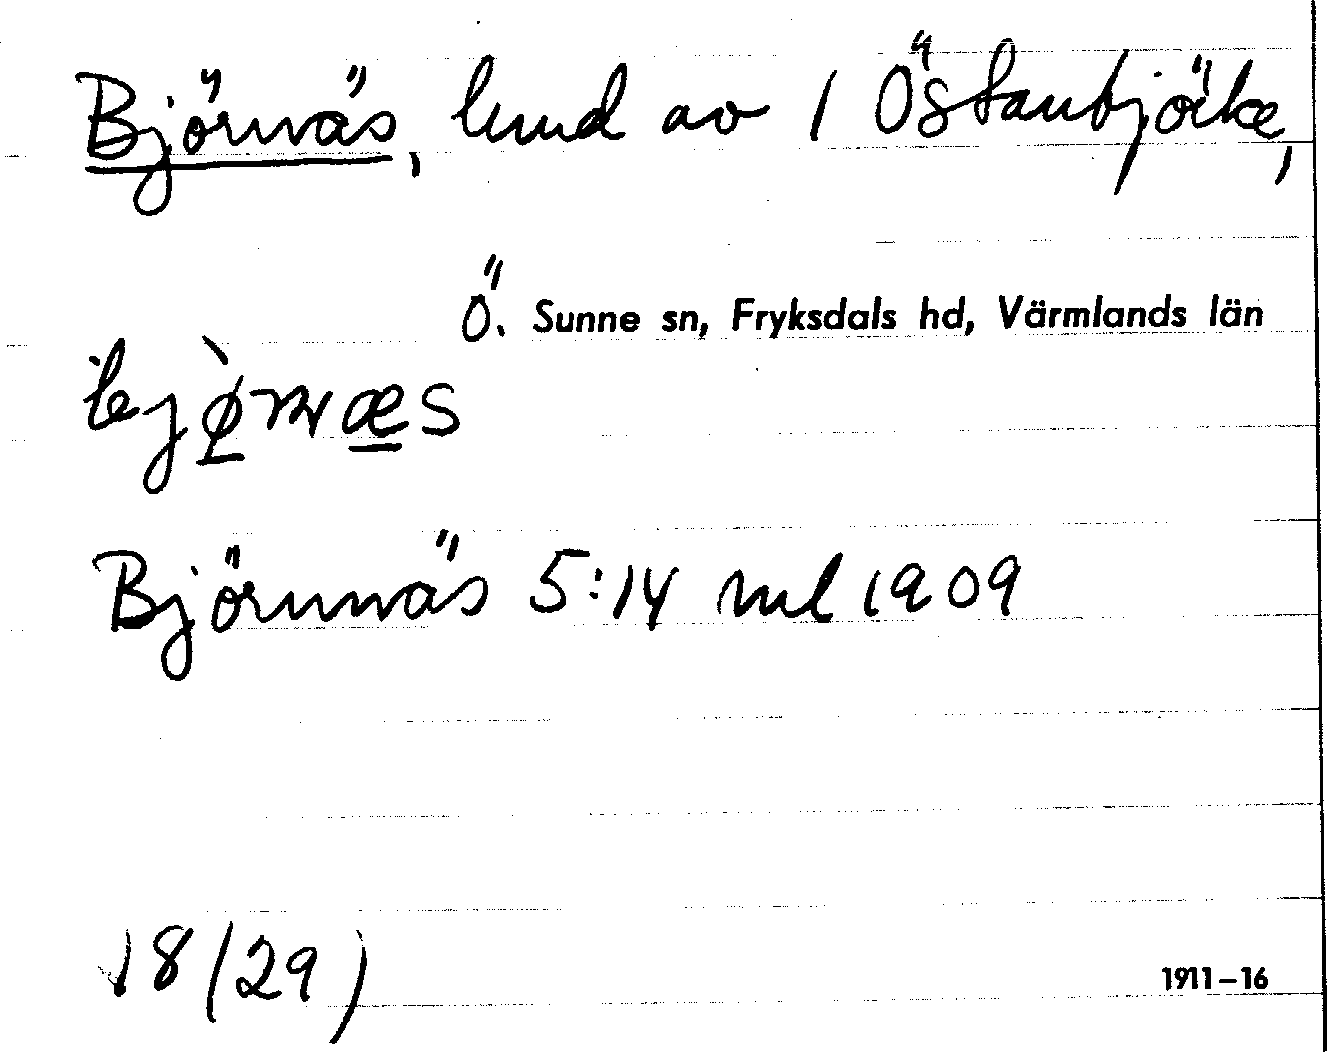 Björnäs, lmd av 1 Östanbjörke,
Ö. Sunne sn, Fryksdals hd, Värmlands län
bjø̀rnæs
Björnnäs 5:14 ml 1909
18 (29)
1911-16